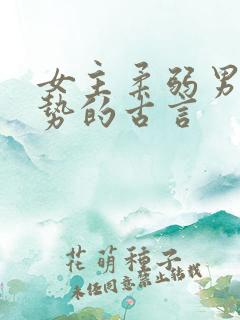 女主柔弱男
势的古言
花萌種子
未经同意禁止转载